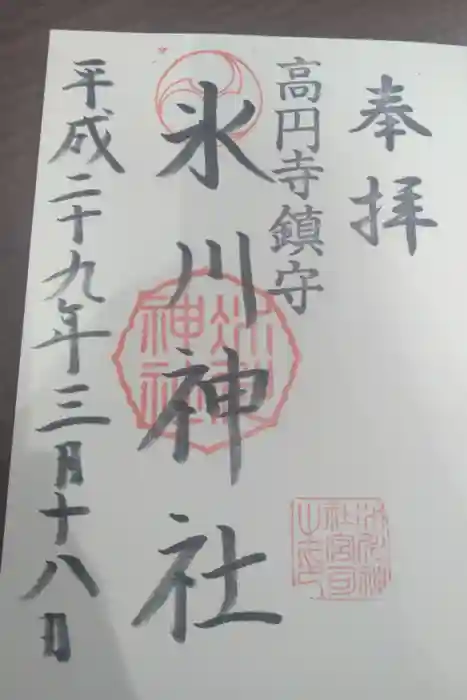 奉拝
高円寺鎮守
氷川神社
平成二十九年三月十八日
氷川神社
氷川神社宮司之印